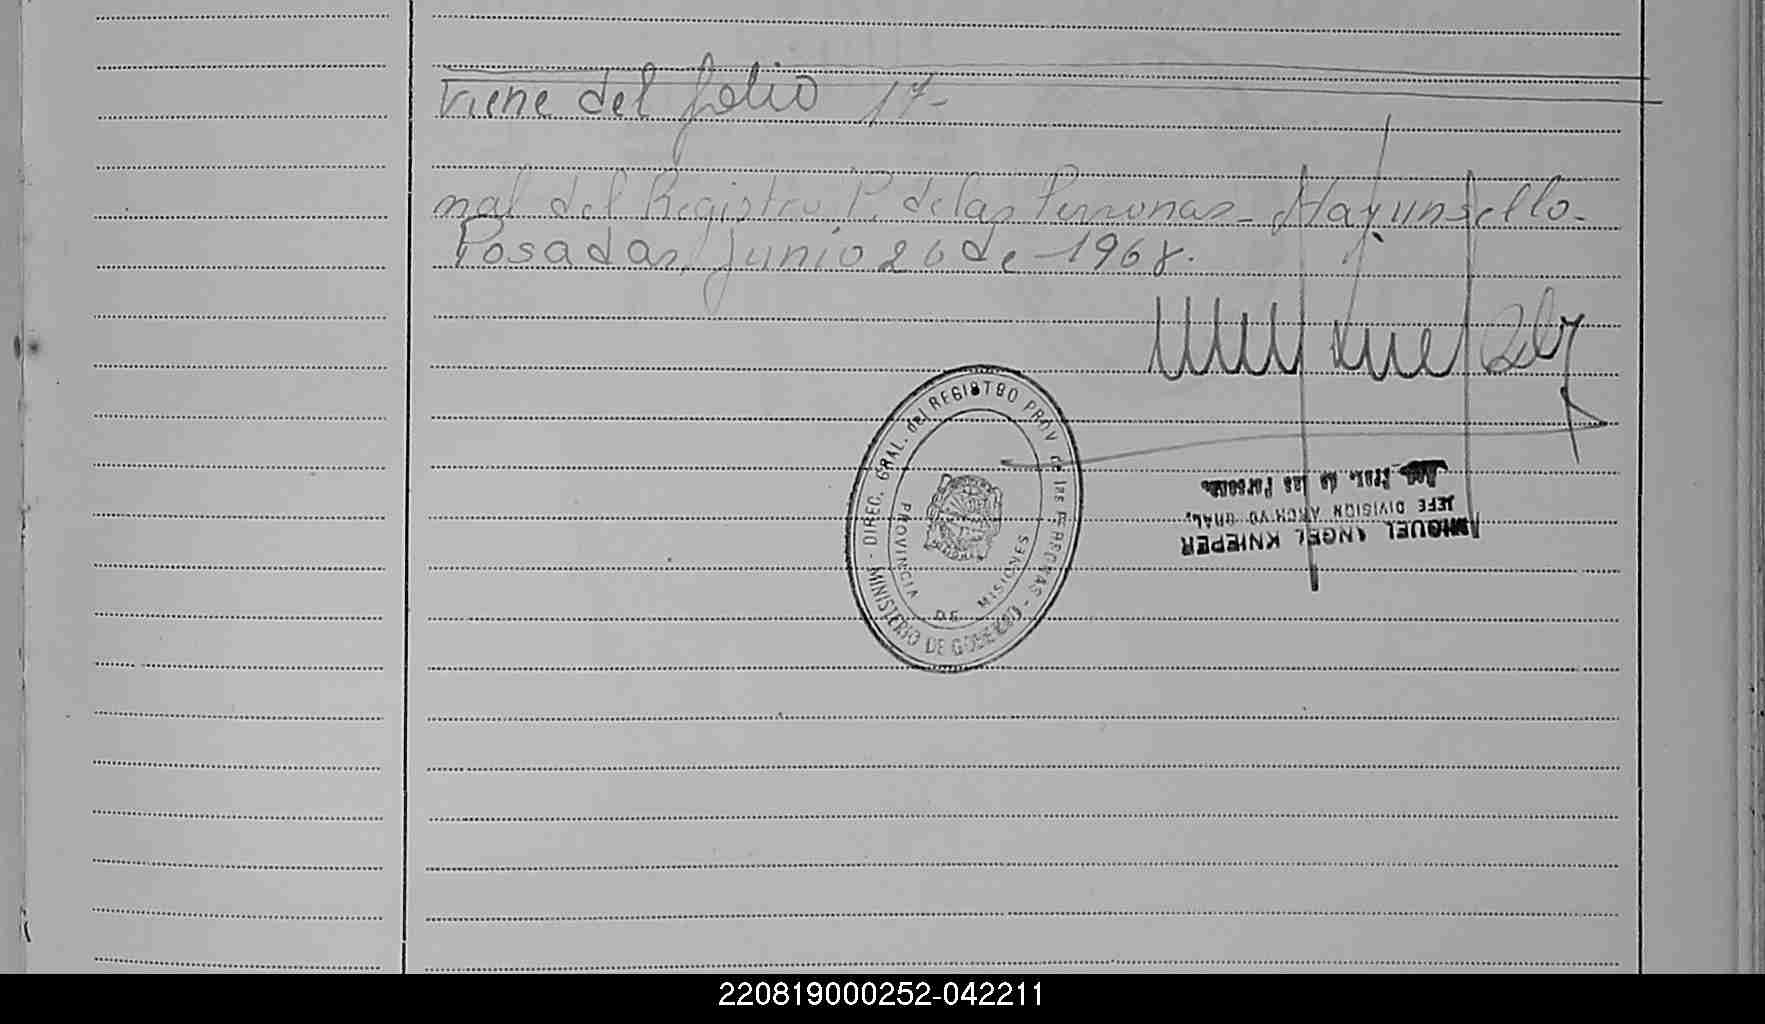 Viene del folio 17-
nal del Registro P. de las Personas - Hay un sello -
Posadas, junio 26 de 1968.
DIREC. GRAL. del REGISTRO PROV de las PERSONAS - MINISTERIO DE GOBIERNO -
PROVINCIA DE MISIONES
MIGUEL ANGEL KNIEPER
JEFE DIVISION ARCHVO GRAL,
de las Personas
220819000252-042211